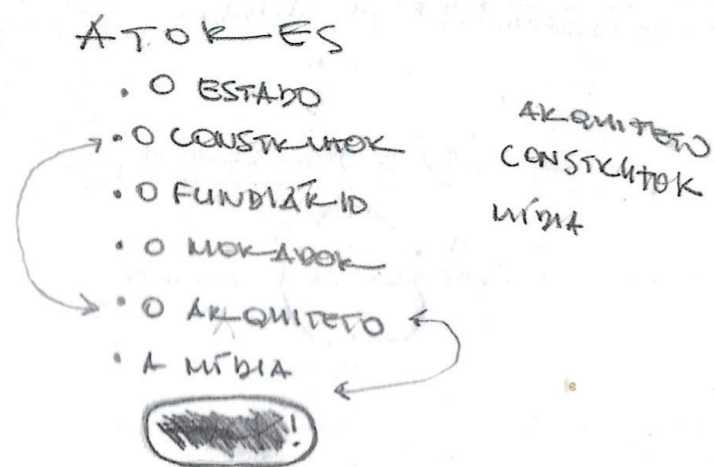 ATORES
• O ESTADO
• O CONSTRUTOR
• O FUNDIÁRIO
• O MORADOR
• O ARQUITETO
• A MÍDIA
!
ARQUITETO
CONSTRUTOR
MÍDIA